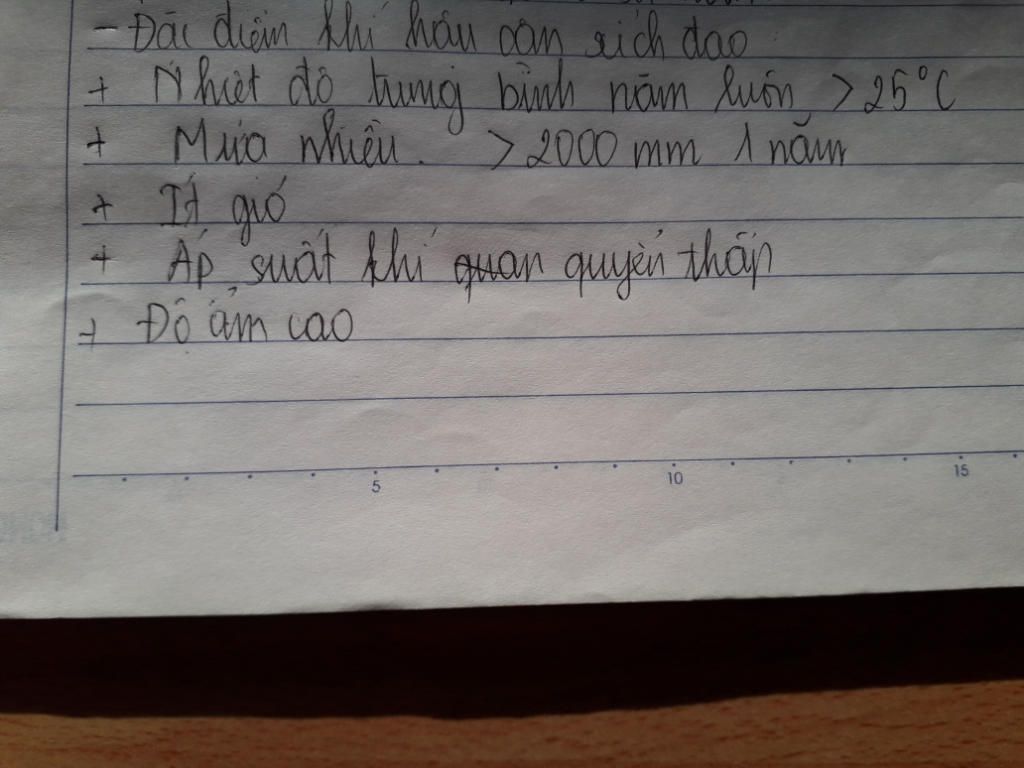 - Đặc điểm khí hậu cận xích đạo
+ Nhiệt độ trung bình năm luôn > 25°C
+ Mưa nhiều. > 2000 mm 1 năm
+ Ít gió
+ Áp suất khí quan quyển thấp
+ Độ ẩm cao
5 10 15